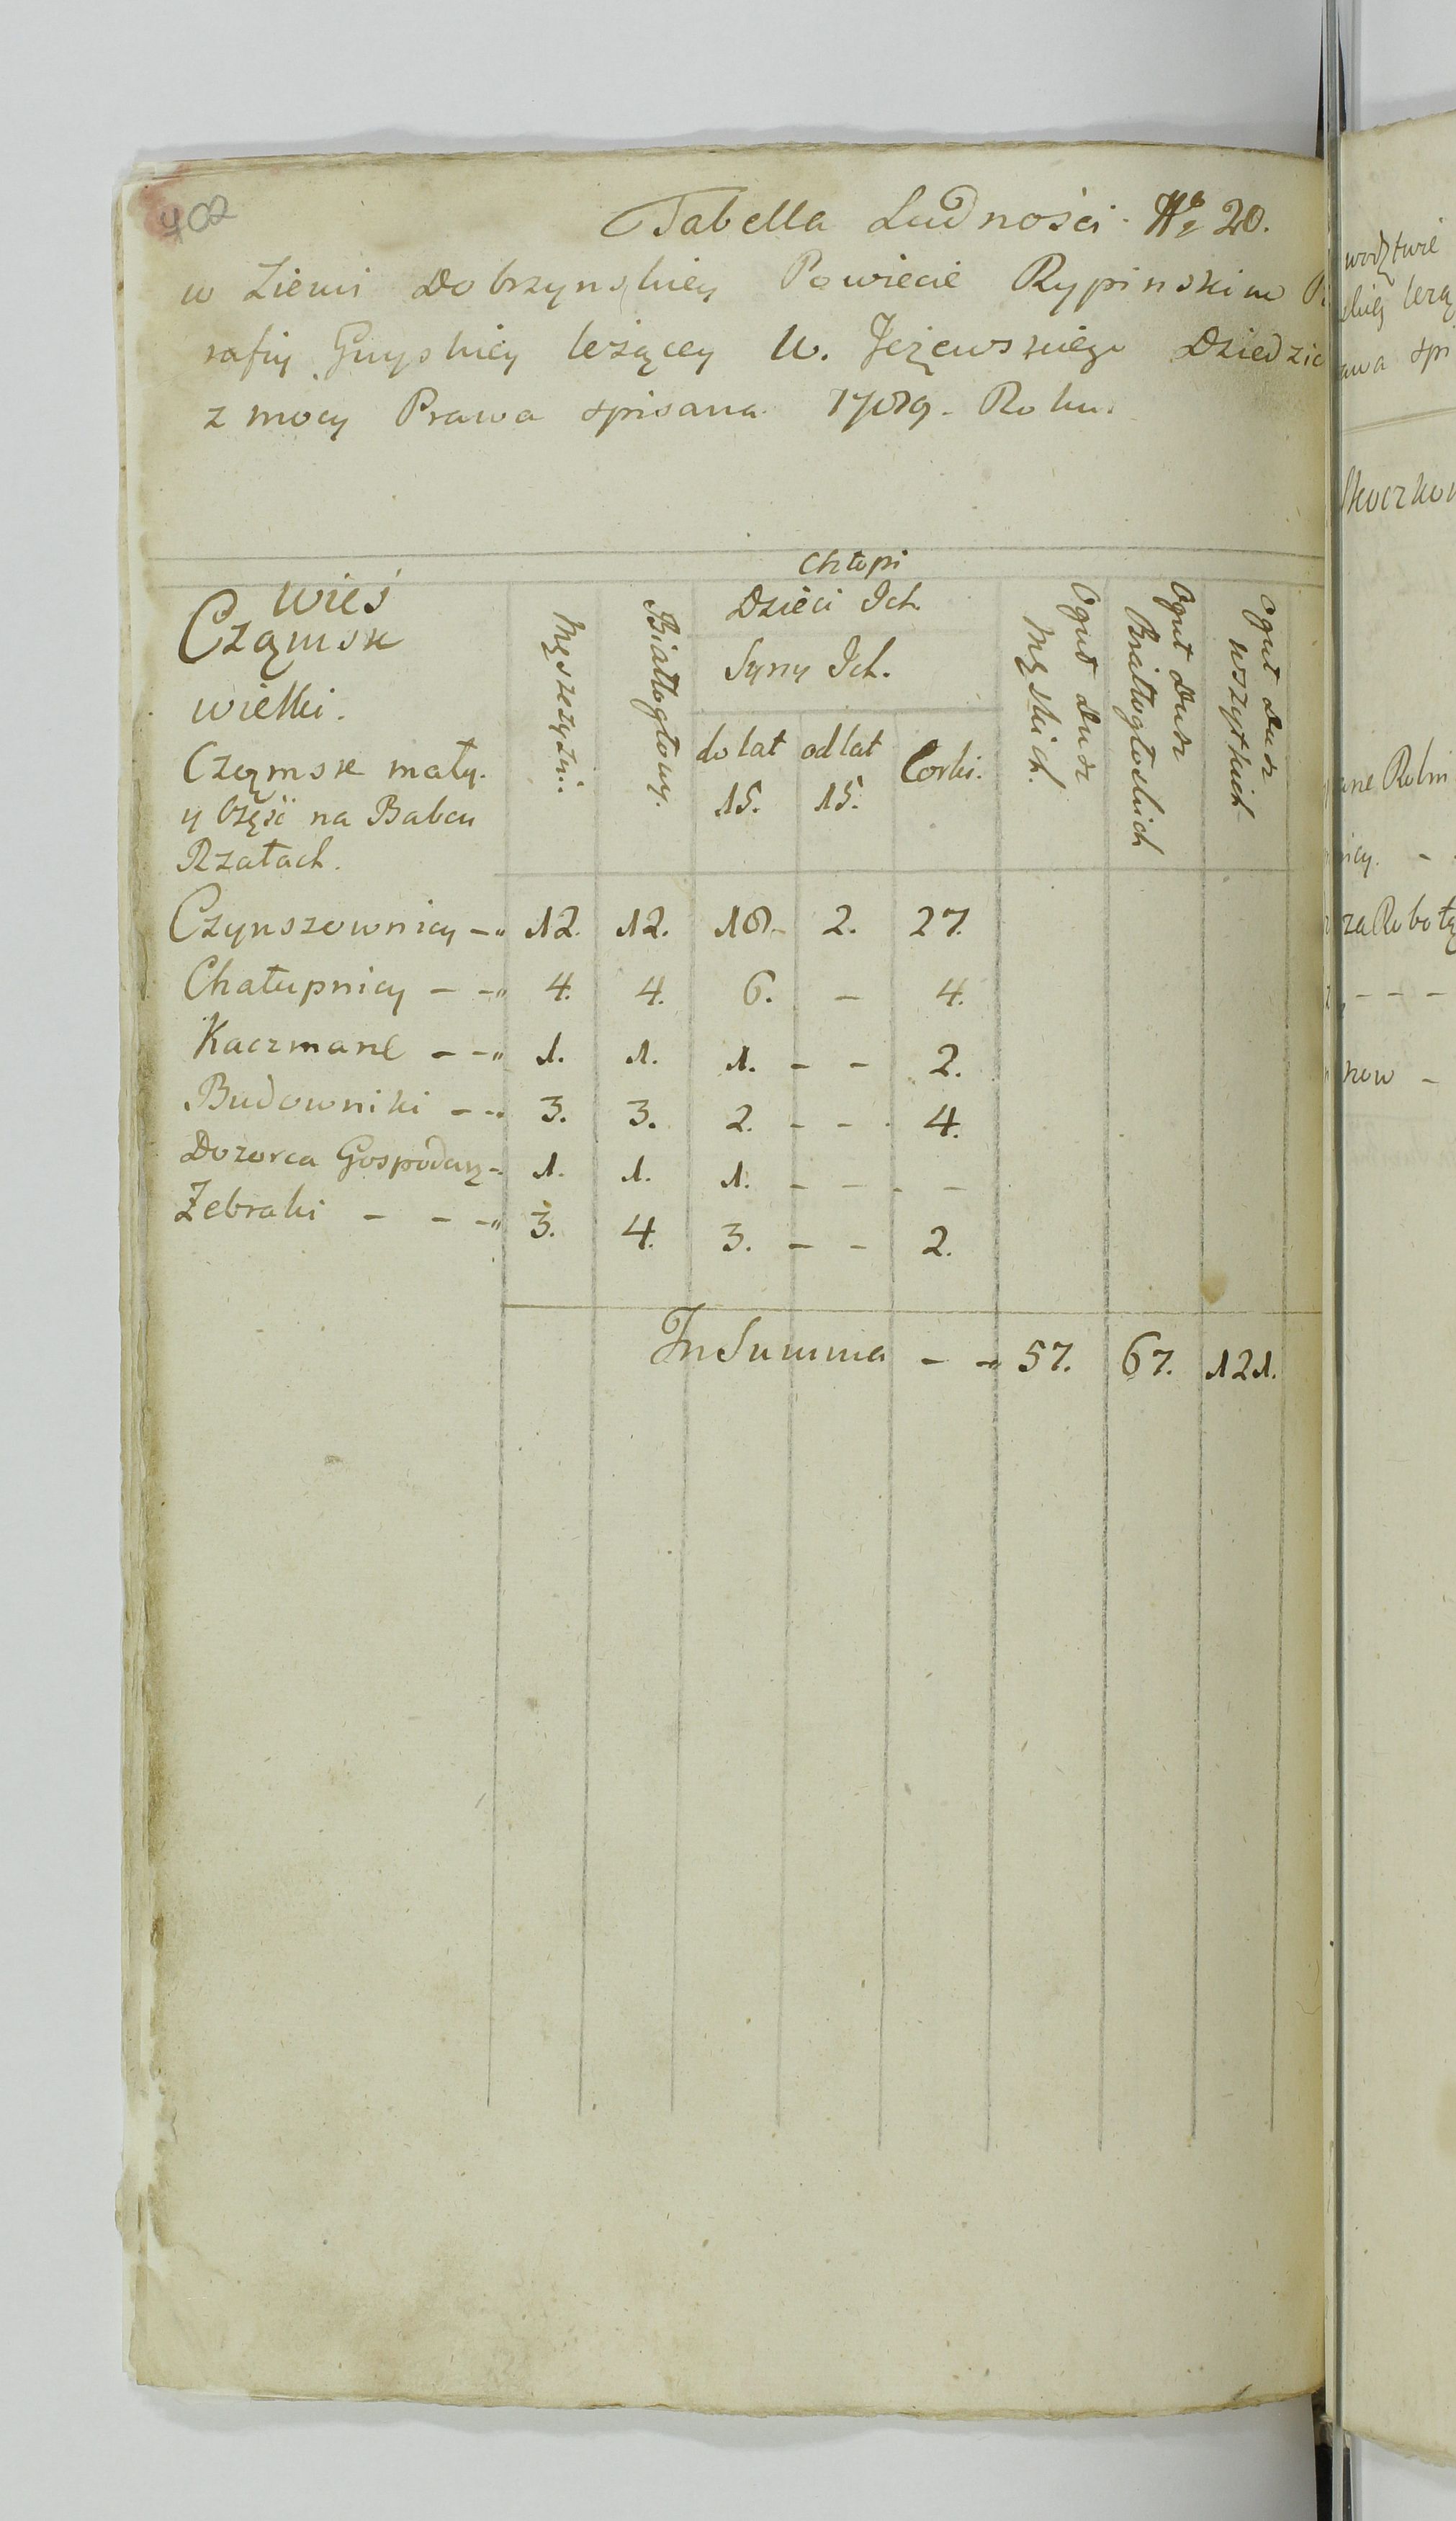 402
Tabella Ludności. No 20.
w Ziemi Dobrzynskiey Powiecie Rypinskim
rafiy Guyskiey leżącey W. Jeżewskiego Dziedzic
z mocy Prawa spisana 1789. Roku.
Chłopi
Wieś
Cząmsk
wielki.
Cząmsk mały.
y Część na Babcu
Rzałach.
Męszczyzni.
Białłogłowy.
Dzieci Ich.
Syny Ich.
do lat 15.
od lat 15.
Corki.
Oguł Dusz Męskich.
Oguł Dusz Białłogłoskich
Oguł Dusz wszytkich
Czynszownicy - „ 12. 12. 18. - 2. 27.
Chałupnicy - - „ 4. 4. 6. - 4.
Kaczmarze - - „ 1. 1. 1. - - 2.
Budowniki - - „ 3. 3. 2. - - . 4.
Dozorca Gospodarz - 1. 1. 1. - - . -
Żebraki - - - „ 3. 4. 3. - - 2.
In Summa - - „ 57. 67. 121.
wodztwie
leżą
awa spi
Skoczkow
za Robotą
- - -
now -